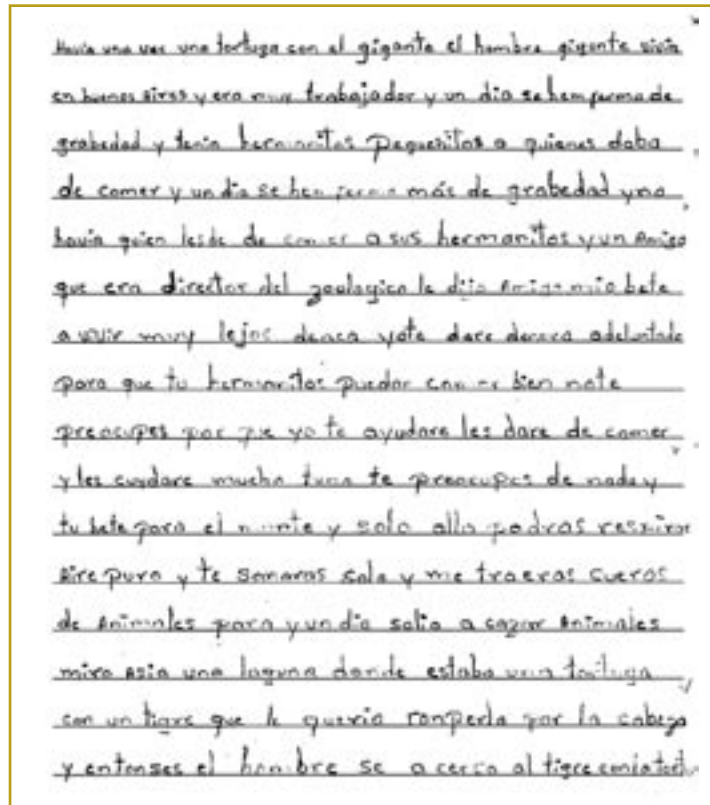 Havia una ves una tortuga con el gigante el hombre gigante vivia
en buenos aires y era muy trabajador y un dia se hemfermo de
grabedad y tenia hermanitos pequeñitos a quienes daba
de comer y un dia se hemfermo más de grabedad y no
havia quien les de de comer a sus hermanitos y un Amigo
que era director del zoologico le dijo Amigo mio bete
a vivir muy lejos deaca yote dare adelantado
para que tu hermanitos puedan comer bien note
preocupes por que yo te ayudare les dare de comer
y les cuydare mucho tuno te preocupes de nada y
tu bete para el monte y solo alla podras respirar
Aire puro y te sanaras solo y me traeras cueros
de Animales para y un dia salio a cazar Animales
miro Asia una laguna donde estaba una tortuga
con un tigre que le queria ronperla por la cabeza
y entonses el hombre se a cerco al tigre